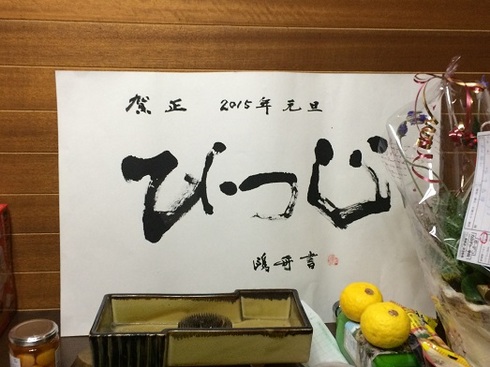 賀正 2015年元旦
ひつじ
鴎舟書